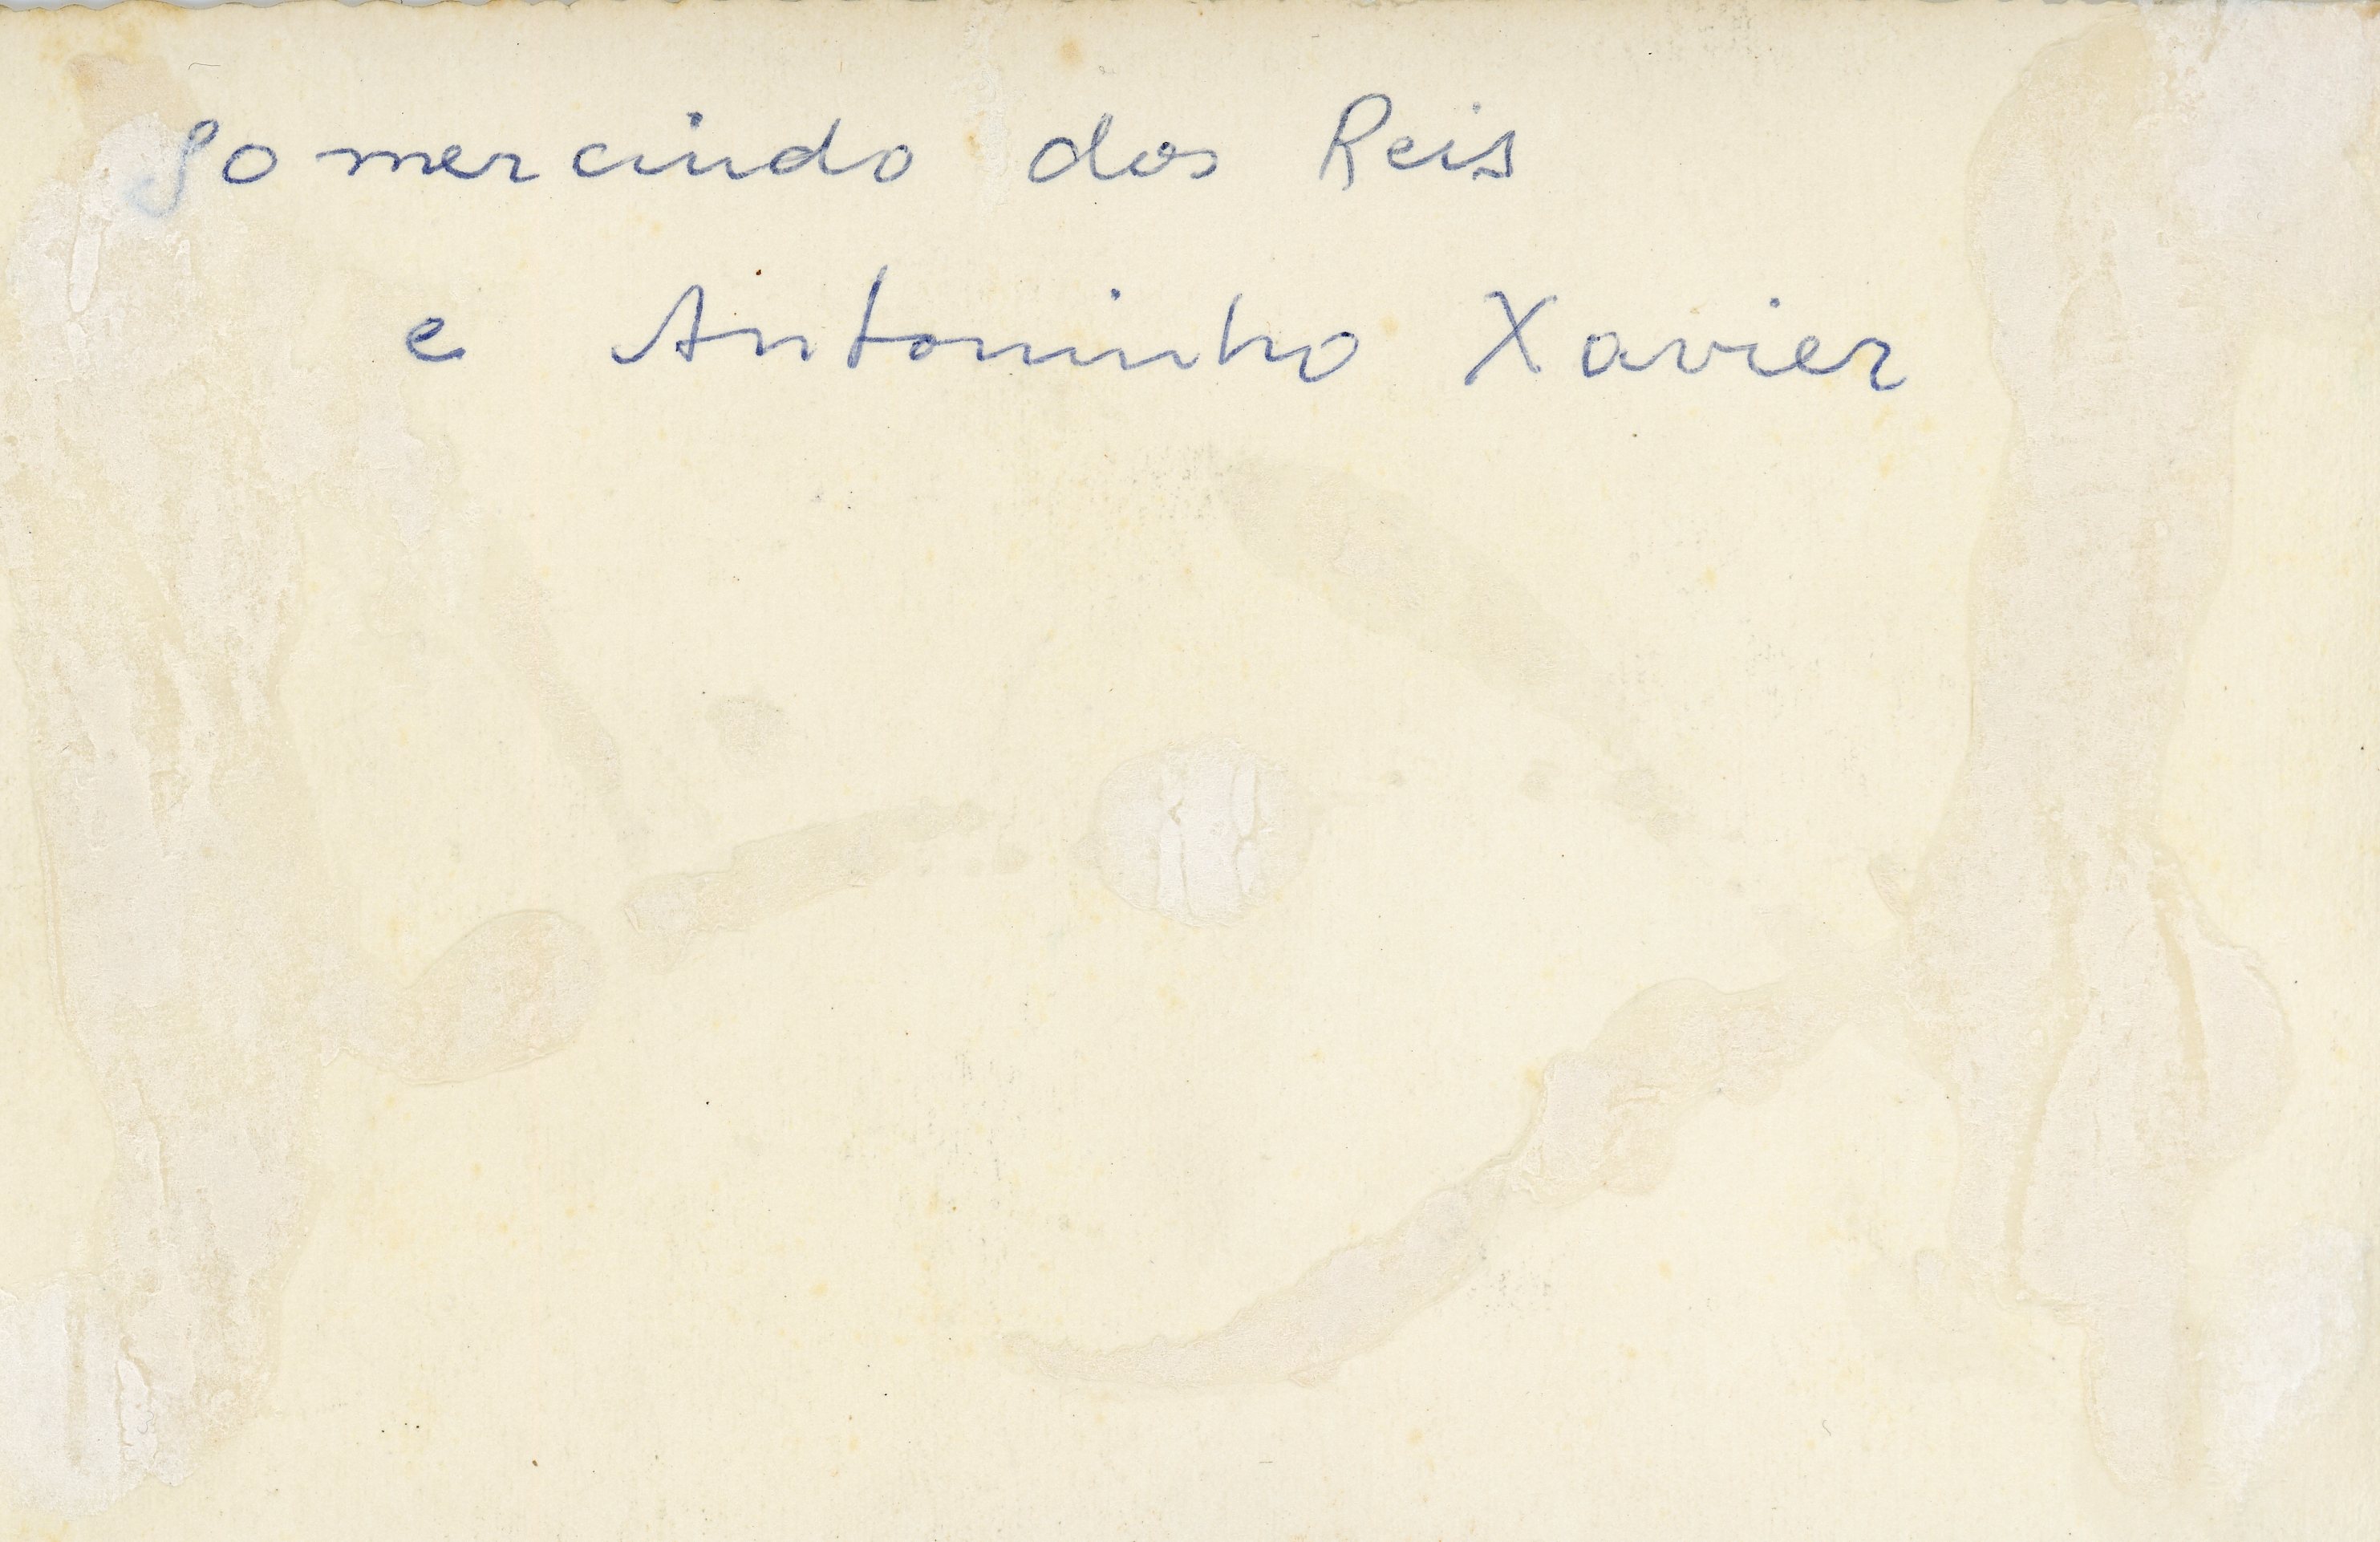 Gomercindo dos Reis
e Antoninho Xavier